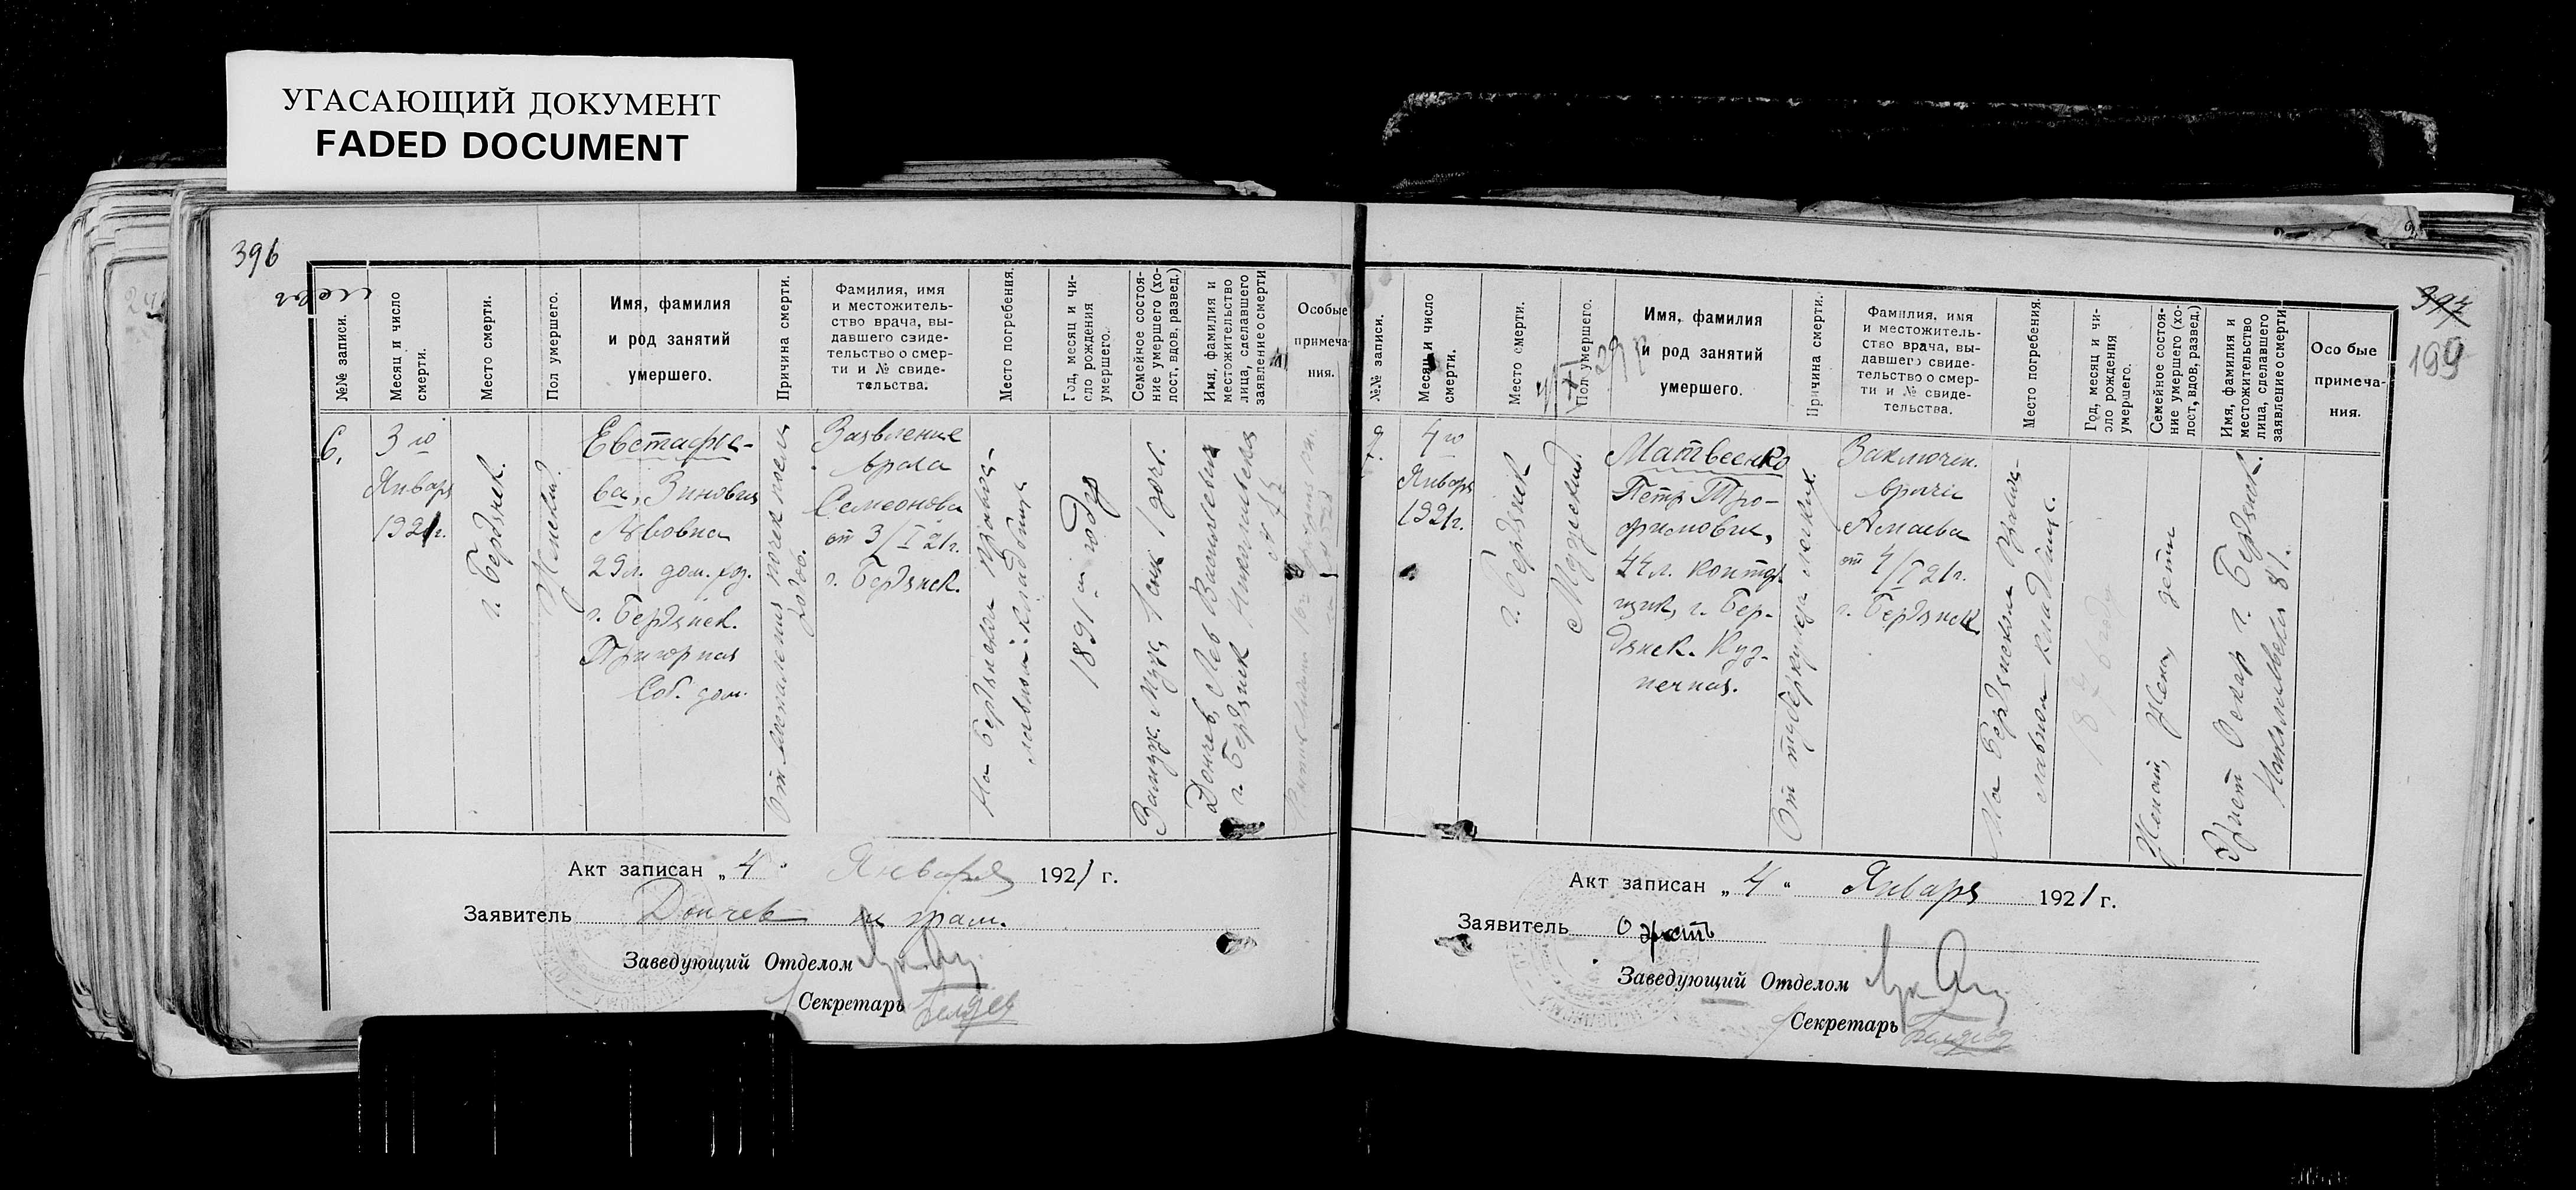 УГАСАЮЩИЙ ДОКУМЕНТ
FADED DOCUMENT
396
№№ записи.
Месяц и число
смерти.
Место смерти.
Пол умершего.
Имя, фамилия
и род занятий
умершего.
Причина смерти.
Фамилия, имя
и местожитель-
ство врача, вы-
давшего свиде-
тельство о смер-
ти и № свиде-
тельства.
Место погребения.
Год, месяц и чи-
сло рождения
умершего.
Семейное состоя-
ние умершего (хо-
лост, вдов, развед.)
Имя, фамилия и
местожительство
лица, сделавшего
заявление о смерти
Особые
примеча-
ния.
6.
3го
Январь
1921г.
г. Бердянск.
Женский
Евстафье-
ва, Зиновия
Львовна
29л. дом. хоз.
г. Бердянск.
Пригорная
Соб. дом.
От воспаления почек после
родов.
Заявление
врача
Семеонова
от 3/I 21г.
г. Бердянск.
На Бердянском Правос-
лавном кладбище
1891-м году
Замуж. Муж 1 сын 1 доч.
Дончев, Лев Васильевич
г. Бердянск
Акт записан „4" Января 1921 г.
Заявитель Дончев не грам.
Заведующий Отделом
Секретарь
397
199
№№ записи.
Месяц и число
смерти.
Место смерти.
Пол умершего.
Имя, фамилия
и род занятий
умершего.
Причина смерти.
Фамилия, имя
и местожитель-
ство врача, вы-
давшего свиде-
тельство о смер-
ти и № свиде-
тельства.
Место погребения.
Год, месяц и чи-
сло рождения
умершего.
Семейное состоя-
ние умершего (хо-
лост, вдов, развед.)
Имя, фамилия и
местожительство
лица, сделавшего
заявление о смерти.
Особые
примеча-
ния.
7.
4го
Январь
1921г.
г. Бердянск
Мужской.
Матвеенко
Петр Тро-
фимович,
44л. контор
щик, г. Бер-
дянск. Куз-
нечная.
От туберкулеза легких.
Заключен.
врача
от 4/I 21г.
г. Бердянск
На Бердянском Правос-
лавном кладбище.
Женат, жена, дети
Эрнст Оскар г. Бердянск.
81.
Акт записан „4" Январь 1921 г.
Заявитель О Эрнстъ
Заведующий Отделом
Секретарь